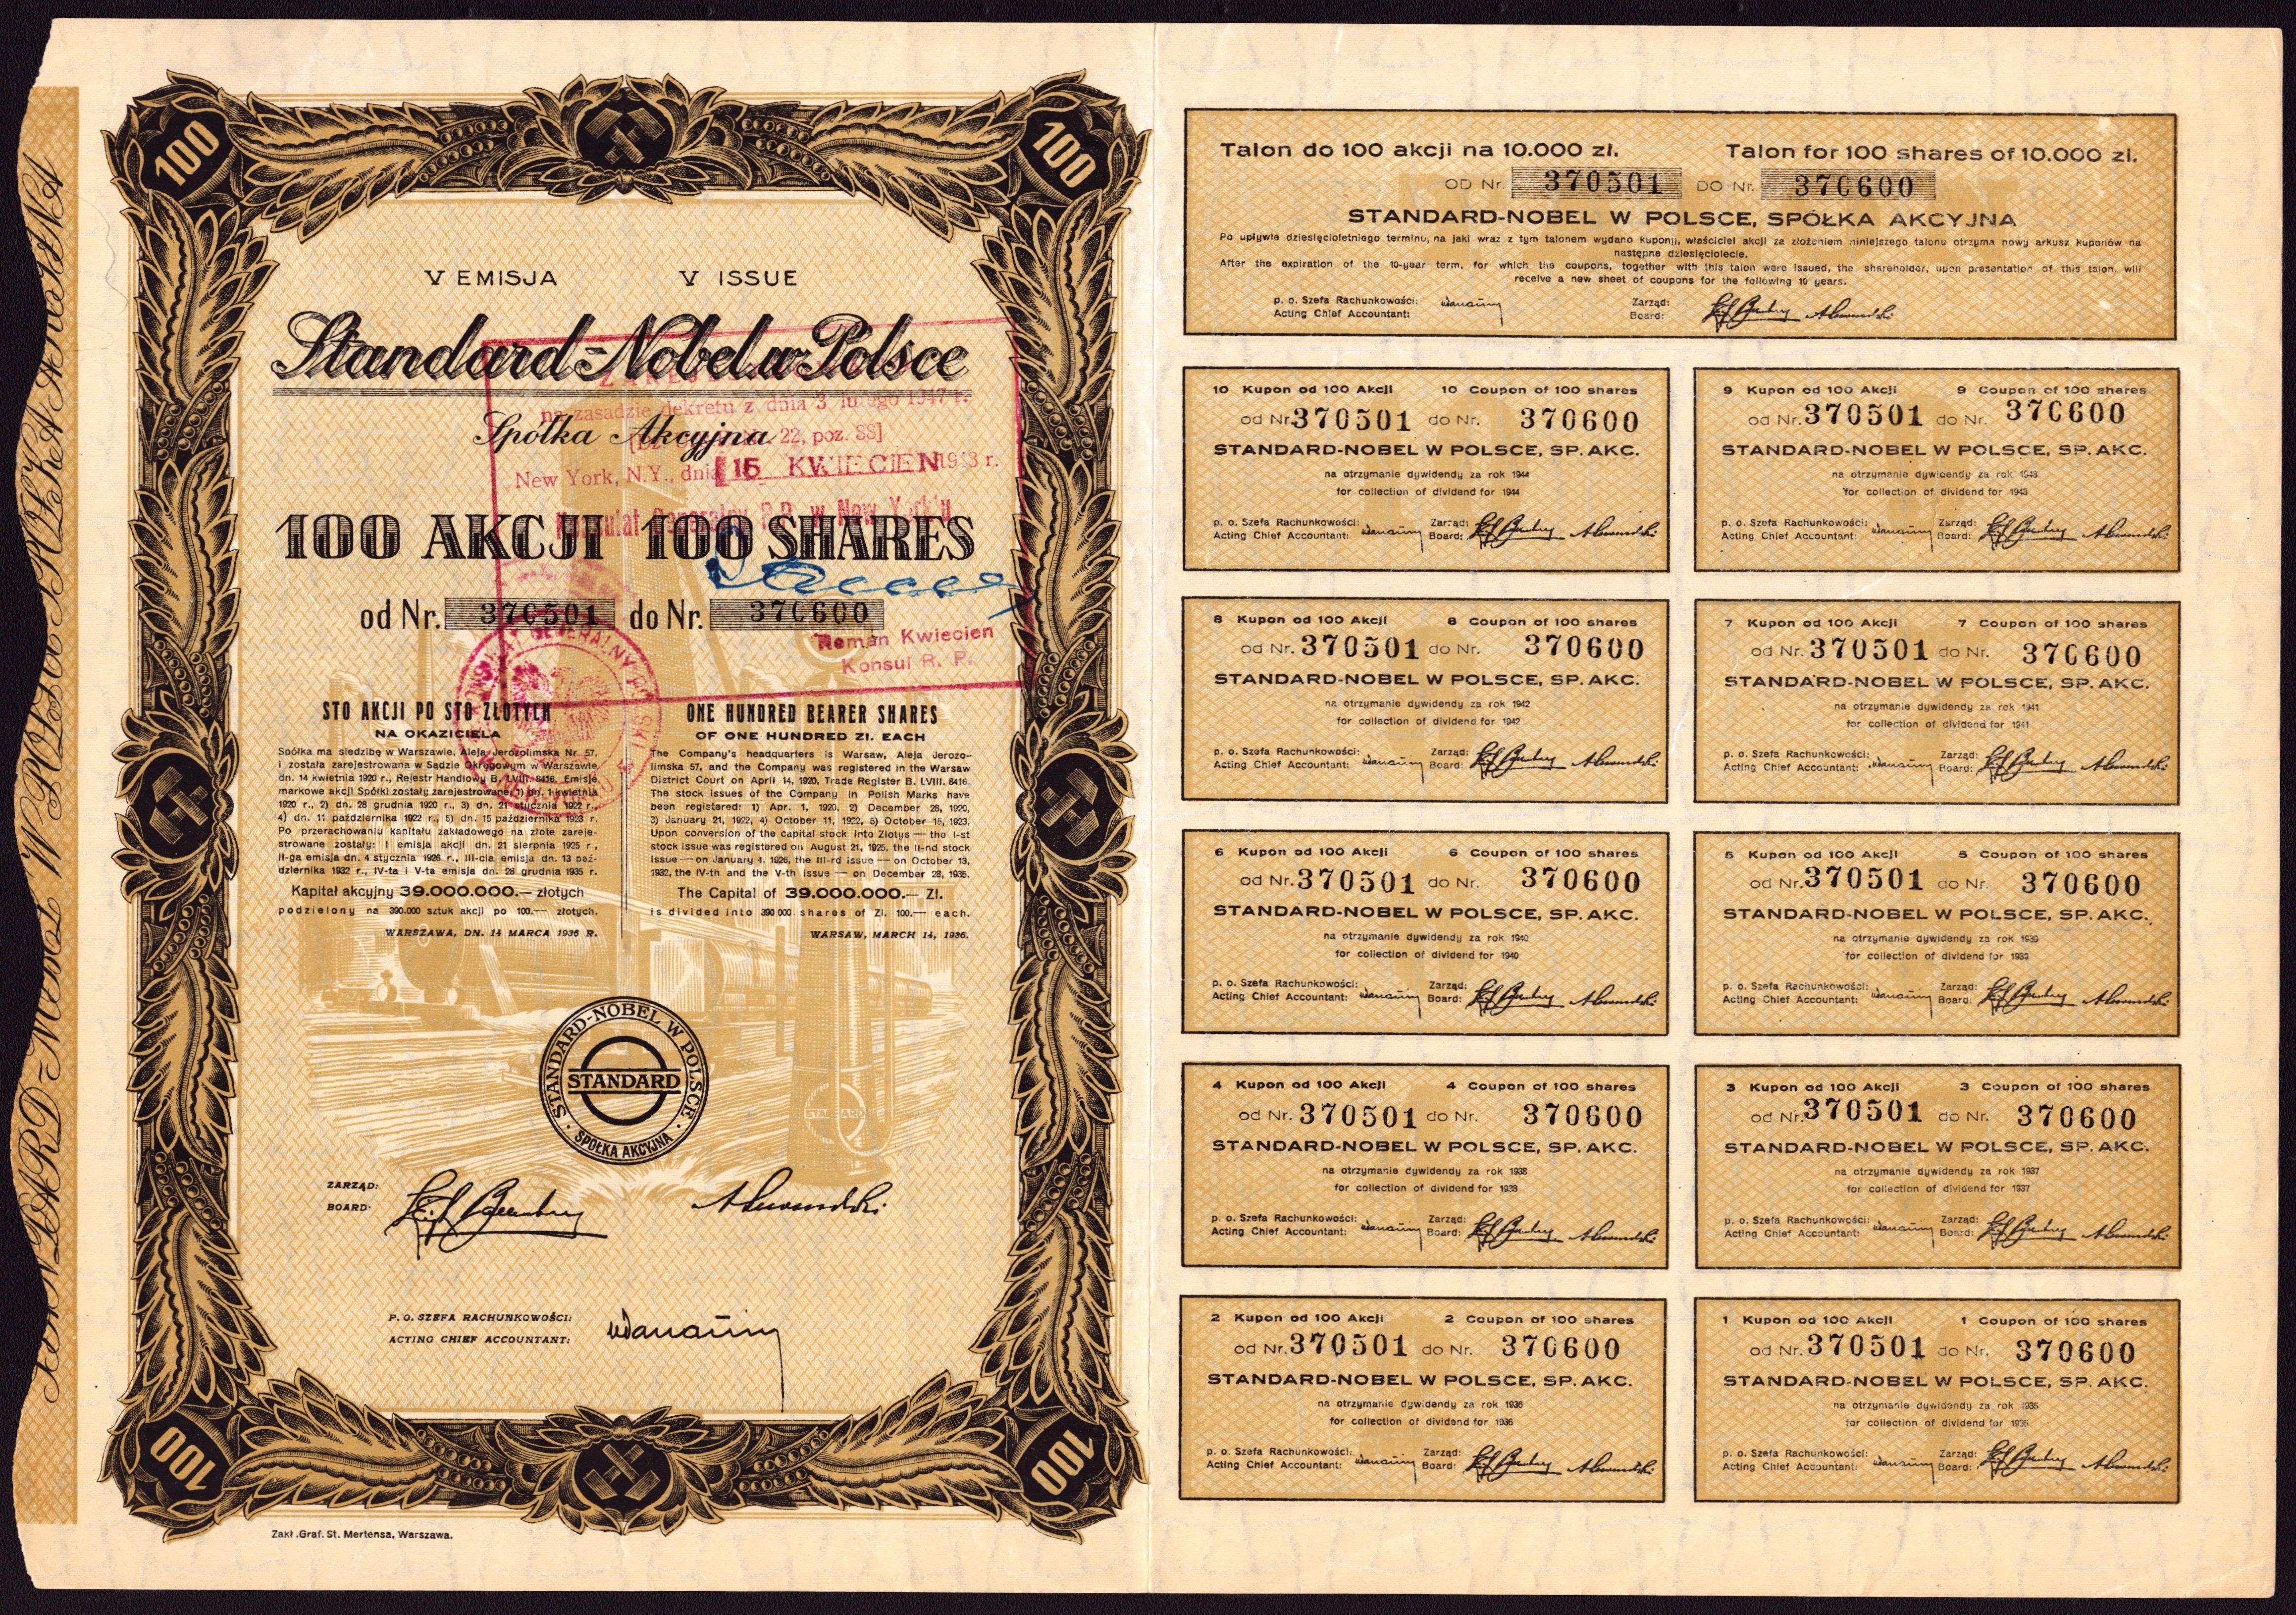 100
100
V EMISJA V ISSUE
Standard-Nobel w Polsce
na zasadzie dekretu z dnia 3 lutego 1947 r.
Spółka Akcyjna
22, poz. 88]
New York, N.Y., dnia 15 KWIECIEN 1948 r.
Konsulat Generalny R.P. w New Yorku
100 AKCJI 100 SHARES
od Nr. 370501 do Nr. 370600
Roman Kwiecien
Konsul R. P.
STO AKCJI PO STO ZŁOTYCH
NA OKAZICIELA
Spółka ma siedzibę w Warszawie, Aleja Jerozolimska Nr 57,
i została zarejestrowana w Sądzie Okręgowym w Warszawie
dn. 14 kwietnia 1920 r., Rejestr Handlowy B. LVIII. 8416. Emisje
markowe akcji Spółki zostały zarejestrowane: 1) dn. 1 kwietnia
1920 r., 2) dn. 28 grudnia 1920 r., 3) dn. 21 stycznia 1922 r.,
4) dn. 11 października 1922 r., 5) dn. 15 października 1923 r.
Po przerachowaniu kapitału zakładowego na złote zareje-
strowane zostały: I emisja akcji dn. 21 sierpnia 1925 r.,
II-ga emisja dn. 4 stycznia 1926 r., III-cia emisja dn. 13 paź-
dziernika 1932 r., IV-ta i V-ta emisja dn. 28 grudnia 1935 r.
Kapitał akcyjny 39.000.000.— złotych
podzielony na 390.000 sztuk akcji po 100.— złotych.
WARSZAWA, DN. 14 MARCA 1936 R.
ONE HUNDRED BEARER SHARES
OF ONE HUNDRED Zl. EACH
The Company's headquarters is Warsaw, Aleja Jerozo-
limska 57, and the Company was registered in the Warsaw
District Court on April 14, 1920, Trade Register B. LVIII. 8416.
The stock issues of the Company in Polish Marks have
been registered: 1) Apr. 1, 1920, 2) December 28, 1920,
3) January 21, 1922, 4) October 11, 1922, 5) October 15, 1923.
Upon conversion of the capital stock into Zlotys — the I-st
stock issue was registered on August 21, 1925, the II-nd stock
issue — on January 4, 1926, the III-rd issue — on October 13,
1932, the IV-th and the V-th issue — on December 28, 1935.
The Capital of 39.000.000.— Zl.
is divided into 390 000 shares of Zl. 100.— each.
WARSAW, MARCH 14, 1936.
STANDARD-NOBEL W POLSCE
STANDARD
SPÓŁKA AKCYJNA
STANDARD
ZARZĄD:
BOARD:
P. O. SZEFA RACHUNKOWOŚCI:
ACTING CHIEF ACCOUNTANT:
100
100
Zakł. Graf. St. Mertensa, Warszawa.
STANDARD-NOBEL W POLSCE SPÓŁKA AKCYJNA
Talon do 100 akcji na 10.000 zł. Talon for 100 shares of 10.000 zl.
OD Nr. 370501 DO Nr. 370600
STANDARD-NOBEL W POLSCE, SPÓŁKA AKCYJNA
Po upływie dziesięcioletniego terminu, na jaki wraz z tym talonem wydano kupony, właściciel akcji za złożeniem niniejszego talonu otrzyma nowy arkusz kuponów na
następne dziesięciolecie.
After the expiration of the 10-year term, for which the coupons, together with this talon were issued, the shareholder, upon presentation of this talon, will
receive a new sheet of coupons for the following 10 years.
p. o. Szefa Rachunkowości: Zarząd:
Acting Chief Accountant: Board:
10 Kupon od 100 Akcji 10 Coupon of 100 shares
od Nr. 370501 do Nr. 370600
STANDARD-NOBEL W POLSCE, SP. AKC.
na otrzymanie dywidendy za rok 1944
for collection of dividend for 1944
p. o. Szefa Rachunkowości: Zarząd:
Acting Chief Accountant: Board:
9 Kupon od 100 Akcji 9 Coupon of 100 shares
od Nr. 370501 do Nr. 370600
STANDARD-NOBEL W POLSCE, SP. AKC.
na otrzymanie dywidendy za rok 1943
for collection of dividend for 1943
p. o. Szefa Rachunkowości: Zarząd:
Acting Chief Accountant: Board:
8 Kupon od 100 Akcji 8 Coupon of 100 shares
od Nr. 370501 do Nr. 370600
STANDARD-NOBEL W POLSCE, SP. AKC.
na otrzymanie dywidendy za rok 1942
for collection of dividend for 1942
p. o. Szefa Rachunkowości: Zarząd:
Acting Chief Accountant: Board:
7 Kupon od 100 Akcji 7 Coupon of 100 shares
od Nr. 370501 do Nr. 370600
STANDARD-NOBEL W POLSCE, SP. AKC.
na otrzymanie dywidendy za rok 1941
for collection of dividend for 1941
p. o. Szefa Rachunkowości: Zarząd:
Acting Chief Accountant: Board:
6 Kupon od 100 Akcji 6 Coupon of 100 shares
od Nr. 370501 do Nr. 370600
STANDARD-NOBEL W POLSCE, SP. AKC.
na otrzymanie dywidendy za rok 1940
for collection of dividend for 1940
p. o. Szefa Rachunkowości: Zarząd:
Acting Chief Accountant: Board:
5 Kupon od 100 Akcji 5 Coupon of 100 shares
od Nr. 370501 do Nr. 370600
STANDARD-NOBEL W POLSCE, SP. AKC.
na otrzymanie dywidendy za rok 1939
for collection of dividend for 1939
p. o. Szefa Rachunkowości: Zarząd:
Acting Chief Accountant: Board:
4 Kupon od 100 Akcji 4 Coupon of 100 shares
od Nr. 370501 do Nr. 370600
STANDARD-NOBEL W POLSCE, SP. AKC.
na otrzymanie dywidendy za rok 1938
for collection of dividend for 1938
p. o. Szefa Rachunkowości: Zarząd:
Acting Chief Accountant: Board:
3 Kupon od 100 Akcji 3 Coupon of 100 shares
od Nr. 370501 do Nr. 370600
STANDARD-NOBEL W POLSCE, SP. AKC.
na otrzymanie dywidendy za rok 1937
for collection of dividend for 1937
p. o. Szefa Rachunkowości: Zarząd:
Acting Chief Accountant: Board:
2 Kupon od 100 Akcji 2 Coupon of 100 shares
od Nr. 370501 do Nr. 370600
STANDARD-NOBEL W POLSCE, SP. AKC.
na otrzymanie dywidendy za rok 1936
for collection of dividend for 1936
p. o. Szefa Rachunkowości: Zarząd:
Acting Chief Accountant: Board:
1 Kupon od 100 Akcji 1 Coupon of 100 shares
od Nr. 370501 do Nr. 370600
STANDARD-NOBEL W POLSCE, SP. AKC.
na otrzymanie dywidendy za rok 1935
for collection of dividend for 1935
p. o. Szefa Rachunkowości: Zarząd:
Acting Chief Accountant: Board: